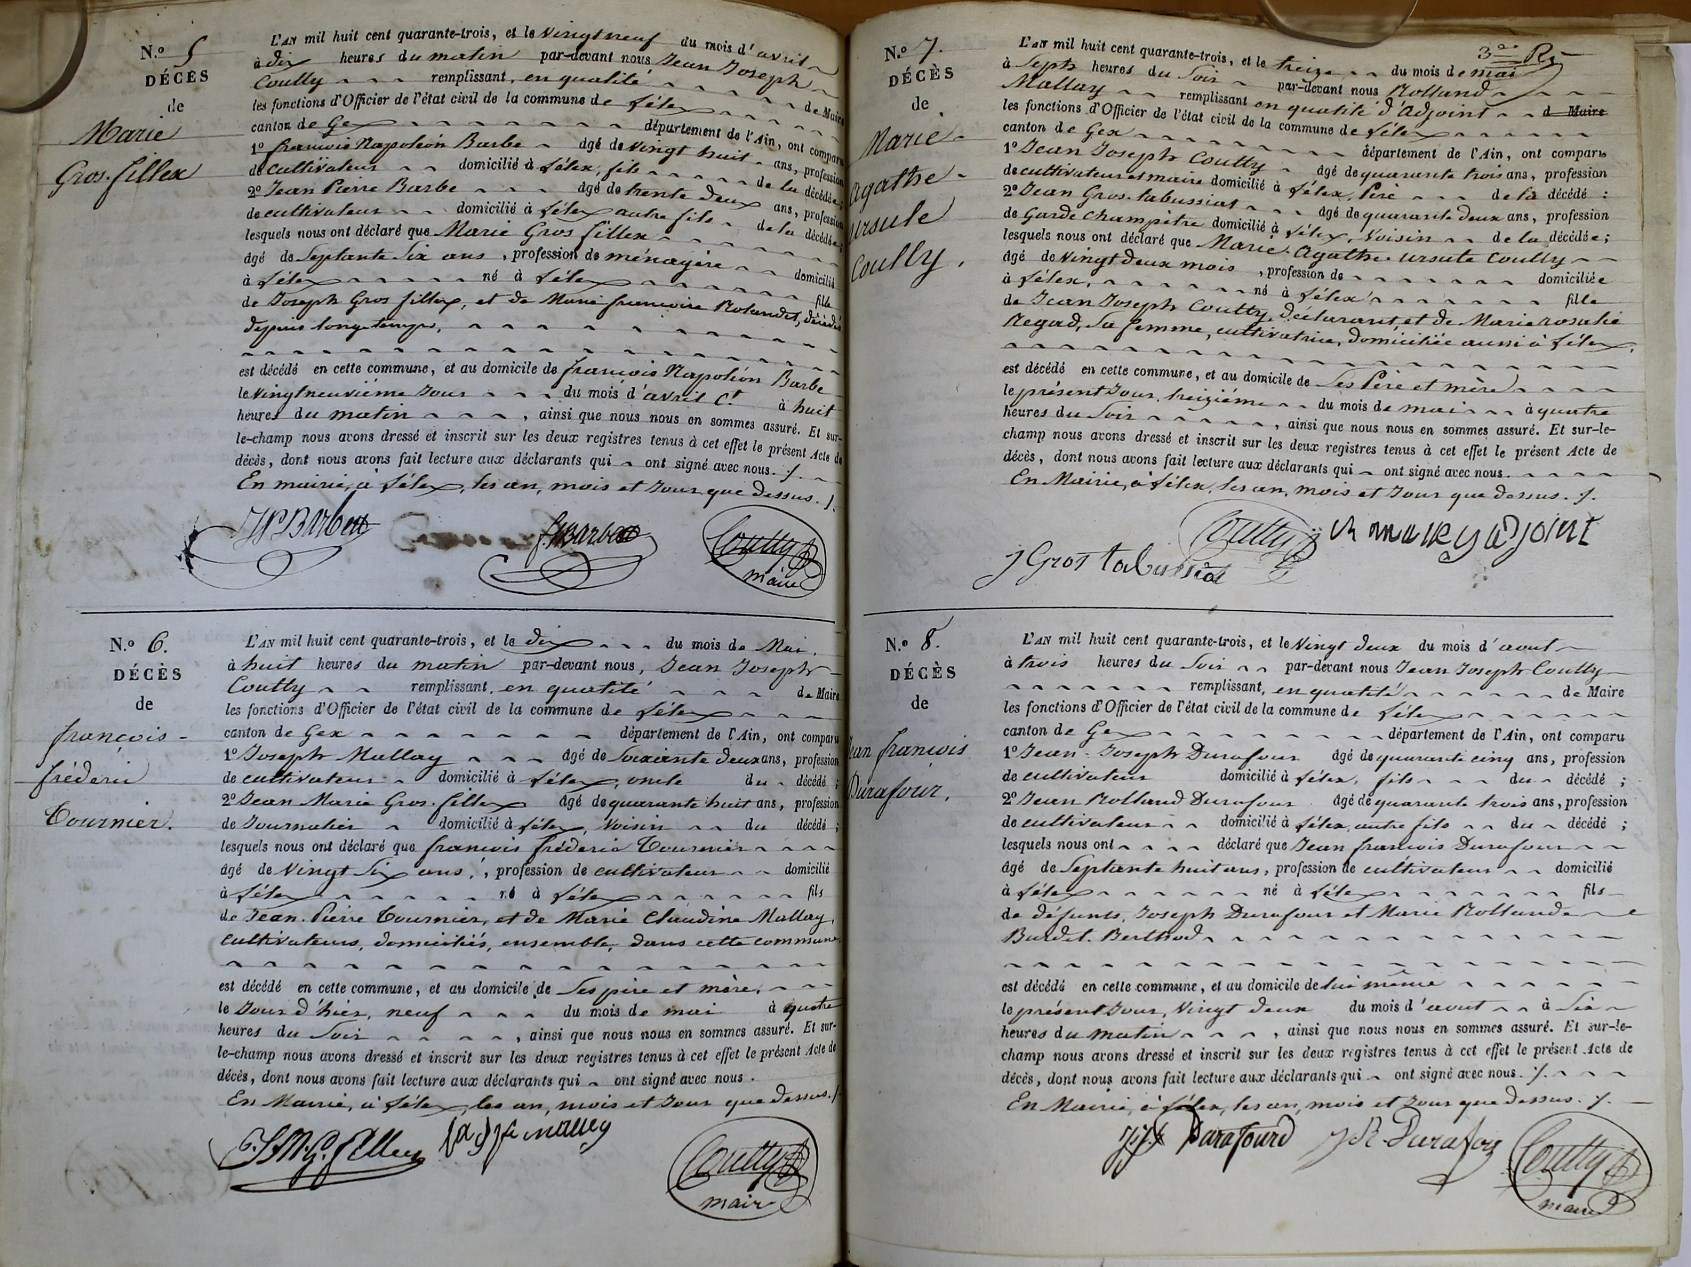 N.o 5
DÉCÈS
de
Marie
Gros-fillex
L'AN mil huit cent quarante-trois, et le vingt neuf du mois d'avril
à dix heures du matin par-devant nous Jean Joseph
Coutty remplissant, en qualité de Maire
les fonctions d'Officier de l'état civil de la commune de Lélex
canton de Gex département de l'Ain, ont comparu
1o françois Napoléon Barbe âgé de vingt huit ans, profession
de cultivateur domicilié à Lélex, fils de la décédée;
2o Jean Pierre Barbe âgé de trente deux ans, profession
de cultivateur domicilié à Lélex autre fils de la décédée
lesquels nous ont déclaré que Marie Gros fillex
âgé de Septante Six ans, profession de ménagère domicilié
à Lélex né à Lélex fille
de Joseph Gros fillex, et de Marie francoise Rolandet, décédés
depuis longtemps,
est décédé en cette commune, et au domicile de françois Napoléon Barbe
le vingt neuvième Jour du mois d'avril Ct à huit
heures du matin, ainsi que nous nous en sommes assuré. Et sur-
le-champ nous avons dressé et inscrit sur les deux registres tenus à cet effet le présent Acte de
décès, dont nous avons fait lecture aux déclarants qui ont signé avec nous. /.
En mairie, à Lélex, les an, mois et Jour que dessus. /.
Coutty
maire
N.o 6.
DÉCÈS
de
françois-
fréderic
Tournier.
L'AN mil huit cent quarante-trois, et le dix du mois de Mai.
à huit heures du matin par-devant nous, Jean Joseph
Coutty remplissant, en qualité de Maire
les fonctions d'Officier de l'état civil de la commune de Lélex
canton de Gex département de l'Ain, ont comparu
1o Joseph Mallay âgé de Soixante deux ans, profession
de cultivateur domicilié à Lélex, oncle du décédé;
2o Jean Marie Gros-fillex âgé de quarante huit ans, profession
de Journalier domicilié à Lélex, Voisin du décédé;
lesquels nous ont déclaré que françois fréderic Tournier
âgé de Vingt Six ans, profession de cultivateur domicilié
à Lélex né à Lélex fils
de Jean-Pierre Tournier, et de Marie Claudine Mallay,
cultivateurs, domiciliés, ensemble, dans cette commune
est décédé en cette commune, et au domicile de Ses père et mère.
le Jour d'hier, neuf du mois de mai à quatre
heures du Soir, ainsi que nous nous en sommes assuré. Et sur-
le-champ nous avons dressé et inscrit sur les deux registres tenus à cet effet le présent Acte de
décès, dont nous avons fait lecture aux déclarants qui ont signé avec nous.
En Mairie, à Lélex, les an, mois et Jour que dessus. /.
Coutty
maire
N.o 7.
DÉCÈS
de
Marie-
Agathe-
Ursule
Coutty.
L'AN mil huit cent quarante-trois, et le treize du mois de mai
à Sept heures du Soir par-devant nous Rolland
Mallay remplissant en qualité d'Adjoint d Maire
les fonctions d'Officier de l'état civil de la commune de Lélex
canton de Gex département de l'Ain, ont comparu
1o Jean Joseph Coutty âgé de quarante trois ans, profession
de cultivateur et maire domicilié à Lélex, Père de la décédé:
2o Jean Gros-tabussiat âgé de quarante deux ans, profession
de Garde champêtre domicilié à Lélex, Voisin de la décédée;
lesquels nous ont déclaré que Marie-Agathe-Ursule Coutty
âgé de Vingt deux mois, profession de domiciliée
à Lélex, né à Lélex fille
de Jean Joseph Coutty, déclarant, et de Marie rosalie
Regad, Sa femme, cultivatrice, domiciliée aussi à Lélex,
est décédé en cette commune, et au domicile de Ses Père et mère
le présent Jour, treizième du mois de mai à quatre
heures du Soir, ainsi que nous nous en sommes assuré. Et sur-le-
champ nous avons dressé et inscrit sur les deux registres tenus à cet effet le présent Acte de
décès, dont nous avons fait lecture aux déclarants qui ont signé avec nous.
En Mairie, à Lélex, les an, mois et Jour que dessus. /.
Coutty
J Gros tabussiat
N.o 8.
DÉCÈS
de
Jean françois
Durafour.
L'AN mil huit cent quarante-trois, et le Vingt deux du mois d'aout
à trois heures du Soir par-devant nous Jean Joseph Coutty
remplissant, en qualité de Maire
les fonctions d'Officier de l'état civil de la commune de Lélex
canton de Gex département de l'Ain, ont comparu
1o Jean-Joseph Durafour âgé de quarante cinq ans, profession
de cultivateur domicilié à Lélex, fils du décédé;
2o Jean Rolland Durafour âgé de quarante trois ans, profession
de cultivateur domicilié à Lélex, autre fils du décédé;
lesquels nous ont déclaré que Jean françois Durafour
âgé de Septante huit ans, profession de cultivateur domicilié
à Lélex né à Lélex fils
de défunts, Joseph Durafour et Marie Rollande
Burdet-Berthod
est décédé en cette commune, et au domicile de lui même
le présent Jour, Vingt deux du mois d'aout à Six
heures du matin, ainsi que nous nous en sommes assuré. Et sur-le-
champ nous avons dressé et inscrit sur les deux registres tenus à cet effet le présent Acte de
décès, dont nous avons fait lecture aux déclarants qui ont signé avec nous. /.
En Mairie, à Lélex, les an, mois et Jour que dessus. /.
Coutty
maire